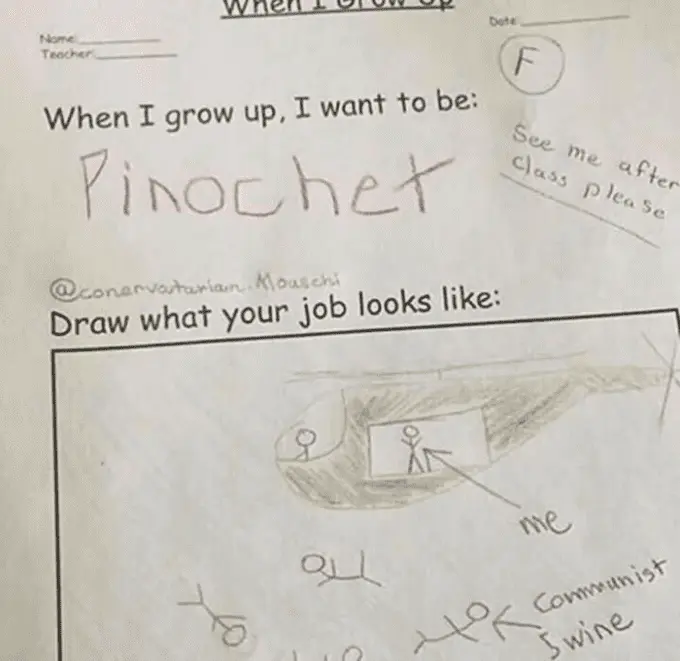 When I Grow Up
Name:
Date:
Teacher:
F
When I grow up, I want to be:
See me after
class please
Pinochet
@conervatarian.Mouschi
Draw what your job looks like:
me
Communist
Swine